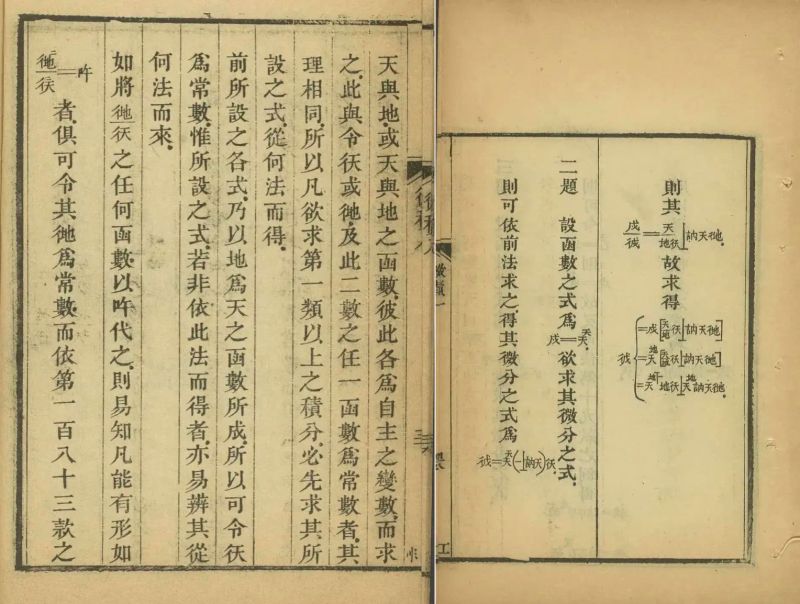 則其戌/彳戌＝天/地彳天⊥訥天彳地.故求得
二題　設函數之式爲戌＝天天.欲求其微分之式.
則可依前法求之.得其微分之式爲彳戌＝天天(一⊥訥天)彳天
天與地.或天與地之函數.彼此各爲自主之變數.而求
之.此與令彳天或彳地.及此二數之任一函數爲常數者.其
理相同.所以凡欲求第一類以上之積分.必先求其所
設之式.從何法而得.
前所設之各式.乃以地爲天之函數所成.所以可令彳天
爲常數.惟所設之式.若非依此法而得者.亦易辨其從
何法而來.
如將彳地/彳天之任何函數.以吘代之.則易知凡能有形如
彳地/彳天＝吘者.俱可令其彳地爲常數.而依第一百八十三款之